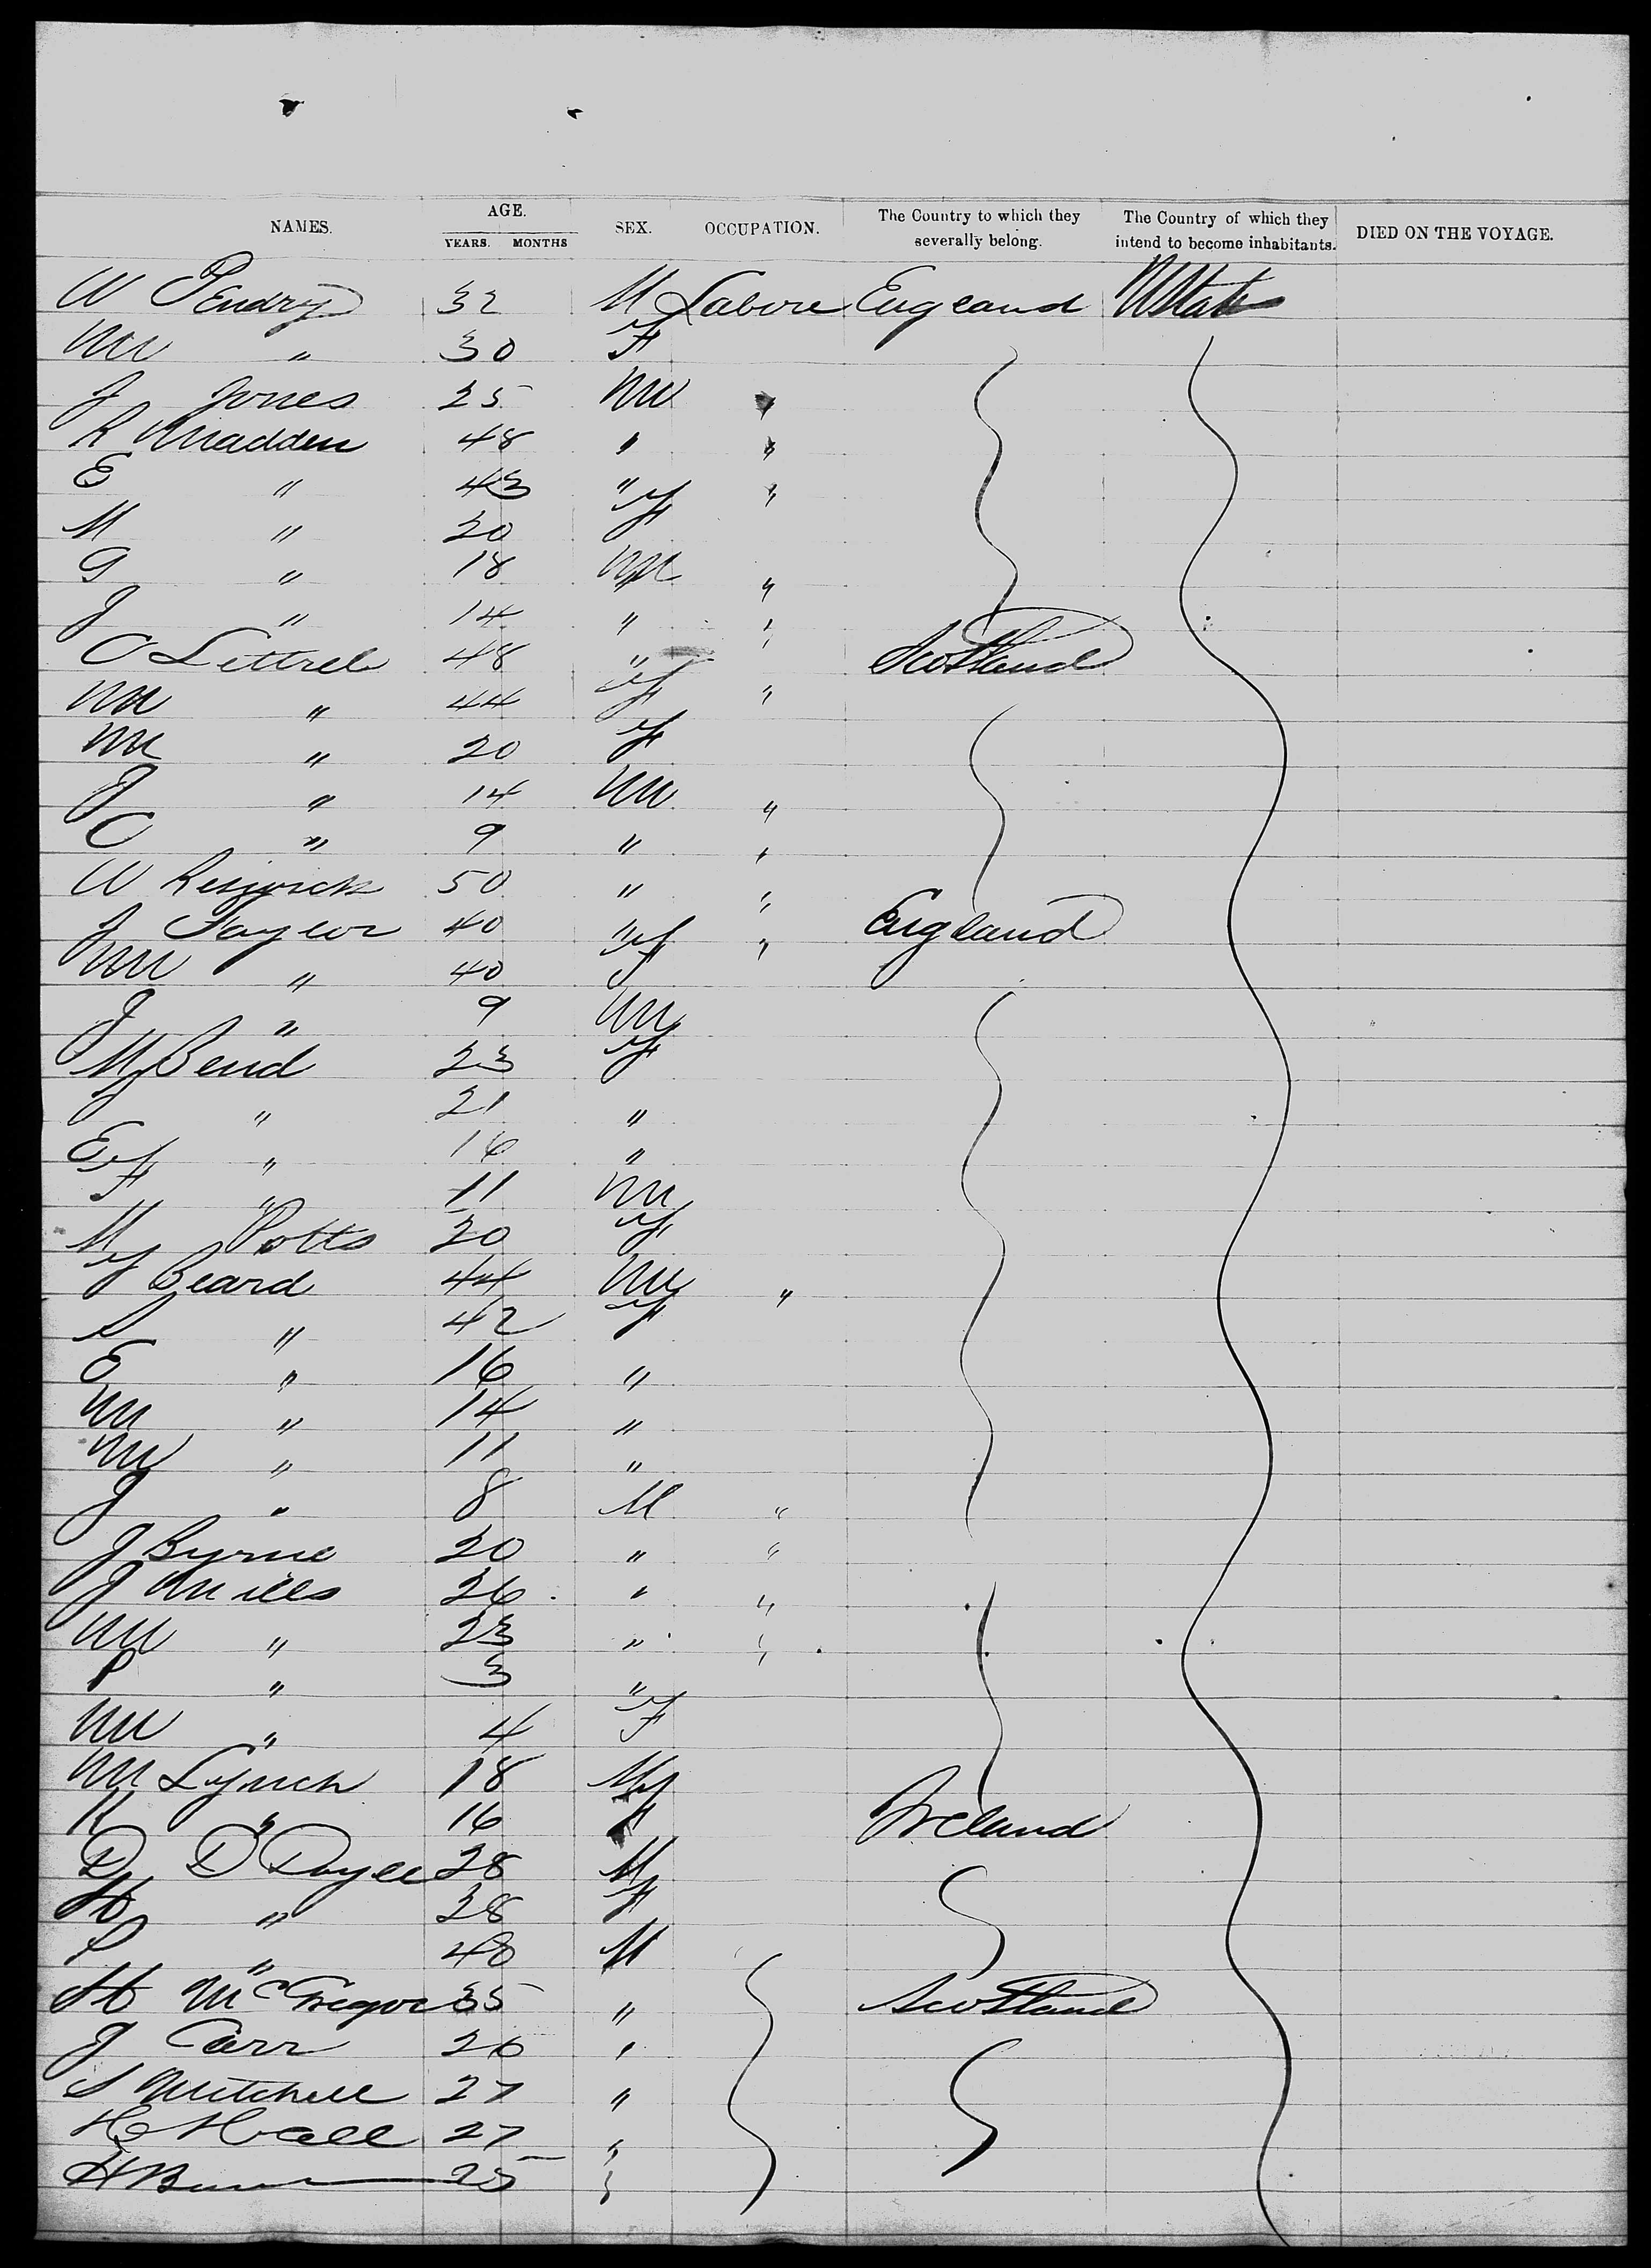 NAMES. AGE. SEX. OCCUPATION. The Country to which they severally belong. The Country of which they intend to become inhabitants. DIED ON THE VOYAGE.
YEARS. MONTHS
W Pendry 32 M Labore England UStates
M " 30 F
J Jones 25 M "
R Madden 48 " "
E " 43 " "
M " 20 F
G " 18 M "
J " 14 " "
C Littrel 48 " Scotland
M " 44 F "
M " 20 F
J " 14 M "
C " 9 " "
W 50 " "
J Taylor 40 " " England
M " 40 F
J " 9 M
M Bend 23 F
J " 21 "
E " 16 "
F " 11 M
M Potts 20 F
J Beard 44 M "
S " 42 F
E " 16 "
M " 14 "
M " 11 "
J " 8 M "
J Byrne 20 " "
J Mills 26 " "
M " 23 " "
P " 3 "
M " 4 F
M Lynch 18 M
K " 16 F Ireland
D D Doyle 28 M
H " 28 F
P " 40 M
H McGregor 35 " Scotland
J Carr 26 "
S Mitchell 27 "
H Hall 27 "
H 25 "